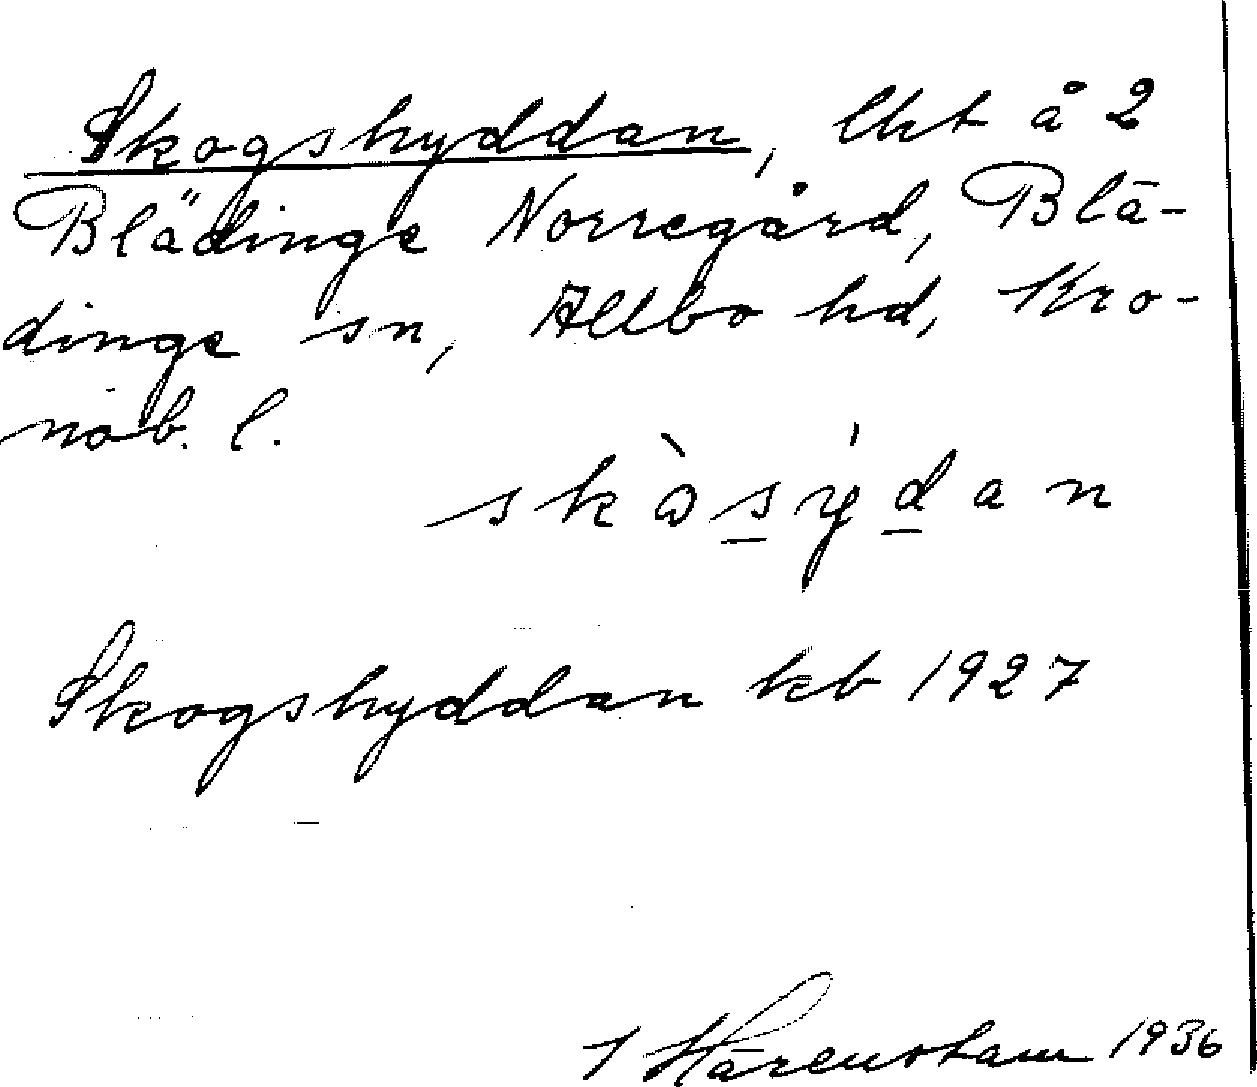 Skogshyddan, lht å 2
Blädinge Norregård, Blä-
dinge sn, Allbo hd, Kro-
nob. l.
skòsýdan
Skogshyddan kb 1927
J Härenstam 1936